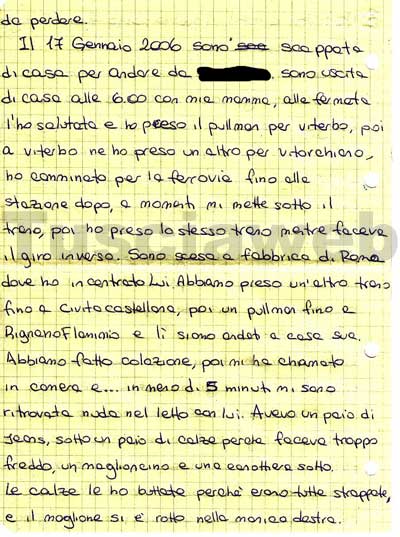 da perdere.
Il 17 Gennaio 2006 sono scappata
di casa per andare da sono uscita
di casa alle 6.00 con mia mamma, alla fermata
l'ho salutata e ho preso il pullman per viterbo, poi
a viterbo ne ho preso un altro per vitorchiano,
ho camminato per la ferrovia fino alla
stazione dopo, a momenti mi mette sotto il
treno, poi ho preso lo stesso treno mentre faceva
il giro inverso. Sono scesa a fabbrica di Roma
dove ho incontrato lui. Abbiamo preso un'altro treno
fino a Civitacastellana, poi un pullman fino a
Rignano Flaminio e lì siamo andati a casa sua.
Abbiamo fatto colazione, poi mi ha chiamato
in camera e... in meno di 5 minuti mi sono
ritrovata nuda nel letto con lui. Avevo un paio di
jeans, sotto un paio di calze perchè faceva troppo
freddo, un maglioncino e una canottiera sotto.
Le calze le ho buttate perchè erano tutte strappate,
e il maglione si è rotto nella manica destra.
Tusciaweb